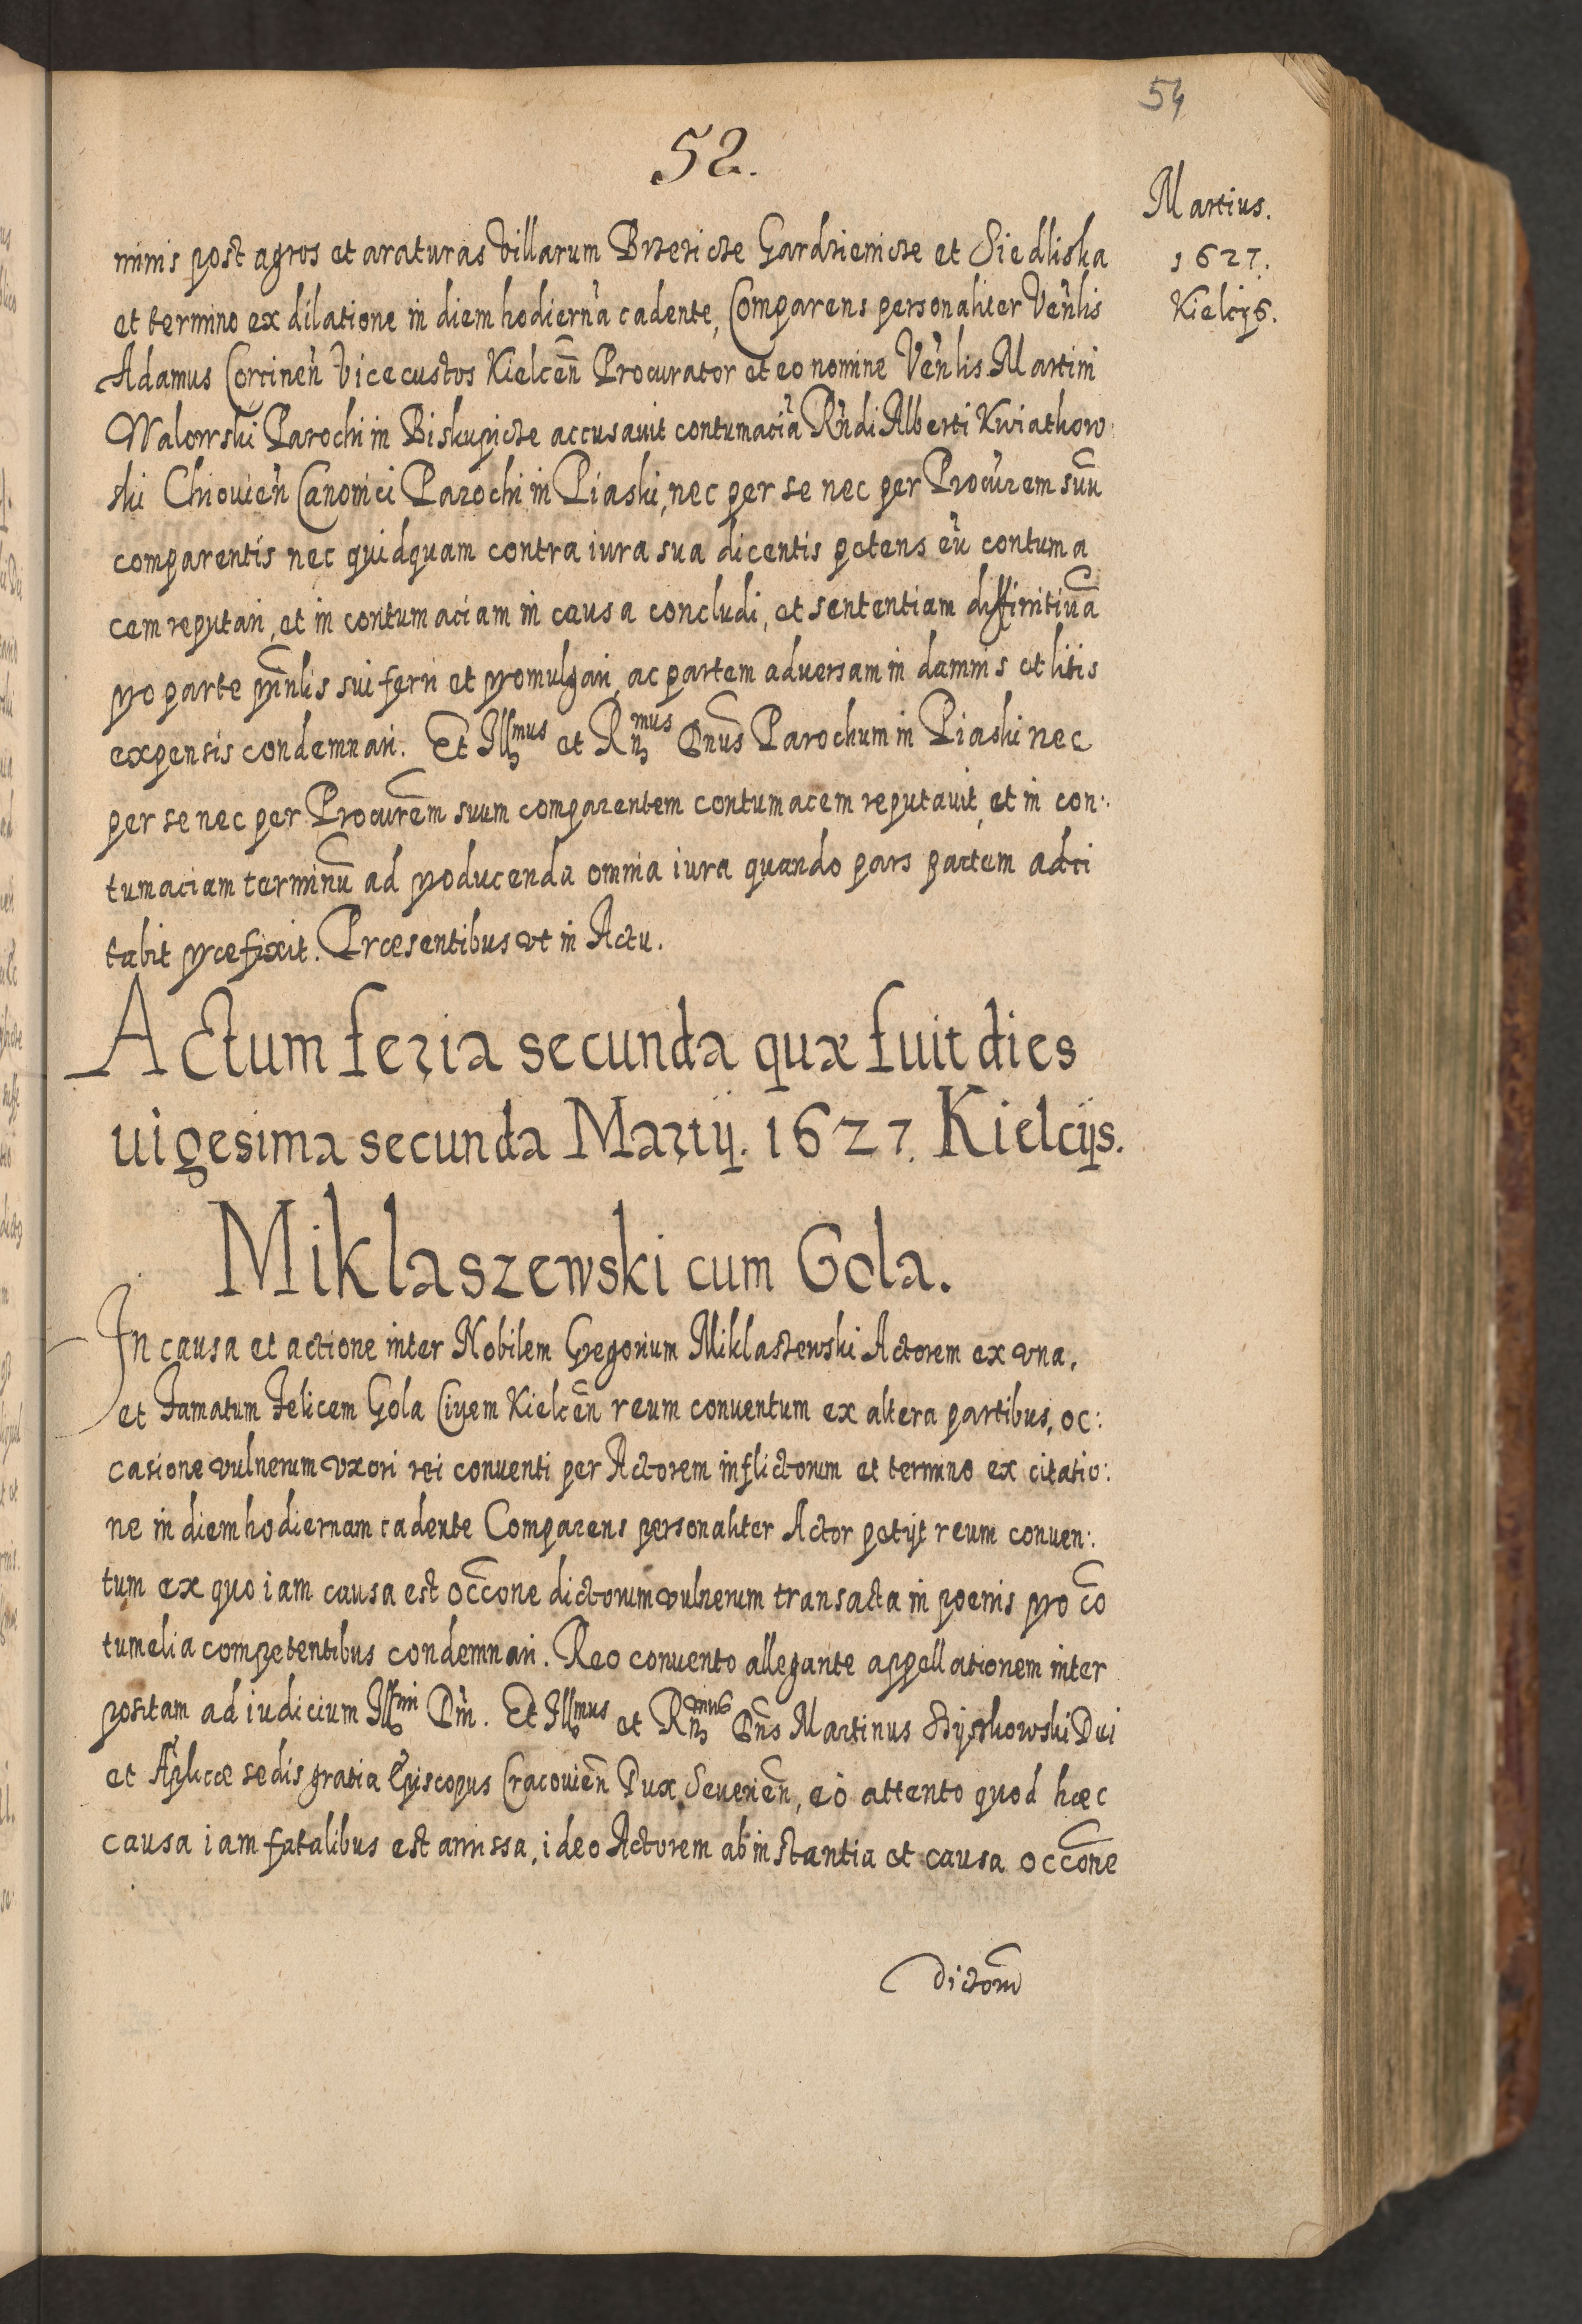 54
52.
Martius.
1627.
Kielcijs.
nimis post agros et araturas villarum Brzezicze Gardzienicze et Siedliska
et termino ex dilatione in diem hodiernã cadente, Comparens personaliter Veñlis
Adamus Corcineñ Vicecustos Kielceñ Procurator et eo nomine Veñlis Martini
Walowski Parochi in Biskupicze accusavit contumaciã Rñdi Alberti Kwiatkow
ski Chiovieñ Canonici Parochi in Piaski, nec per se nec per Procurem suũ
comparentis nec quidquam contra iura sua dicentis petens eũ contuma
cem reputari, et in contumaciam in causa concludi, et sententiam diffinitiuã
pro parte prñlis sui ferri et promulgari, ac partem adversam in damnis et litis
expensis condemnari. Et Illmus et Rñmus Dnus Parochum in Piaski nec
per se nec per Procurem suum comparentem contumacem reputavit, et in con:
tumaciam terminũ ad producenda omnia iura quando pars partem adci
tabit præfixit. Præsentibus vt in Actu.
Actum feria secunda quæ fuit dies
uigesima secunda Martij. 1627. Kielcijs.
Miklaszewski cum Gola.
In causa et actione inter Nobilem Gregorium Miklaszewski Actorem ex vna,
et Famatum Felicem Gola Civem Kielceñ reum conuentum ex altera partibus, oc:
casione vulnerum vxori rei conuenti per Actorem inflictorum et termino ex citatio:
ne in diem hodiernam cadente Comparens personaliter Actor petijt reum conuen:
tum ex quo iam causa est occõne dictorum vulnerum transacta in poenis pro cõ
tumelia competentibus condemnari. Reo conuento allegante appellationem inter
positam ad iudicium Illmi Dni. Et Illmus et Rñmus Dñs Martinus Szyszkowski Dei
et Aplicæ sedis gratia Episcopus Cracovieñ Dux Severieñ, eò attento quod hæc
causa iam fatalibus est amissa, ideo Actorem ab instantia et causa occõne
dictorũ